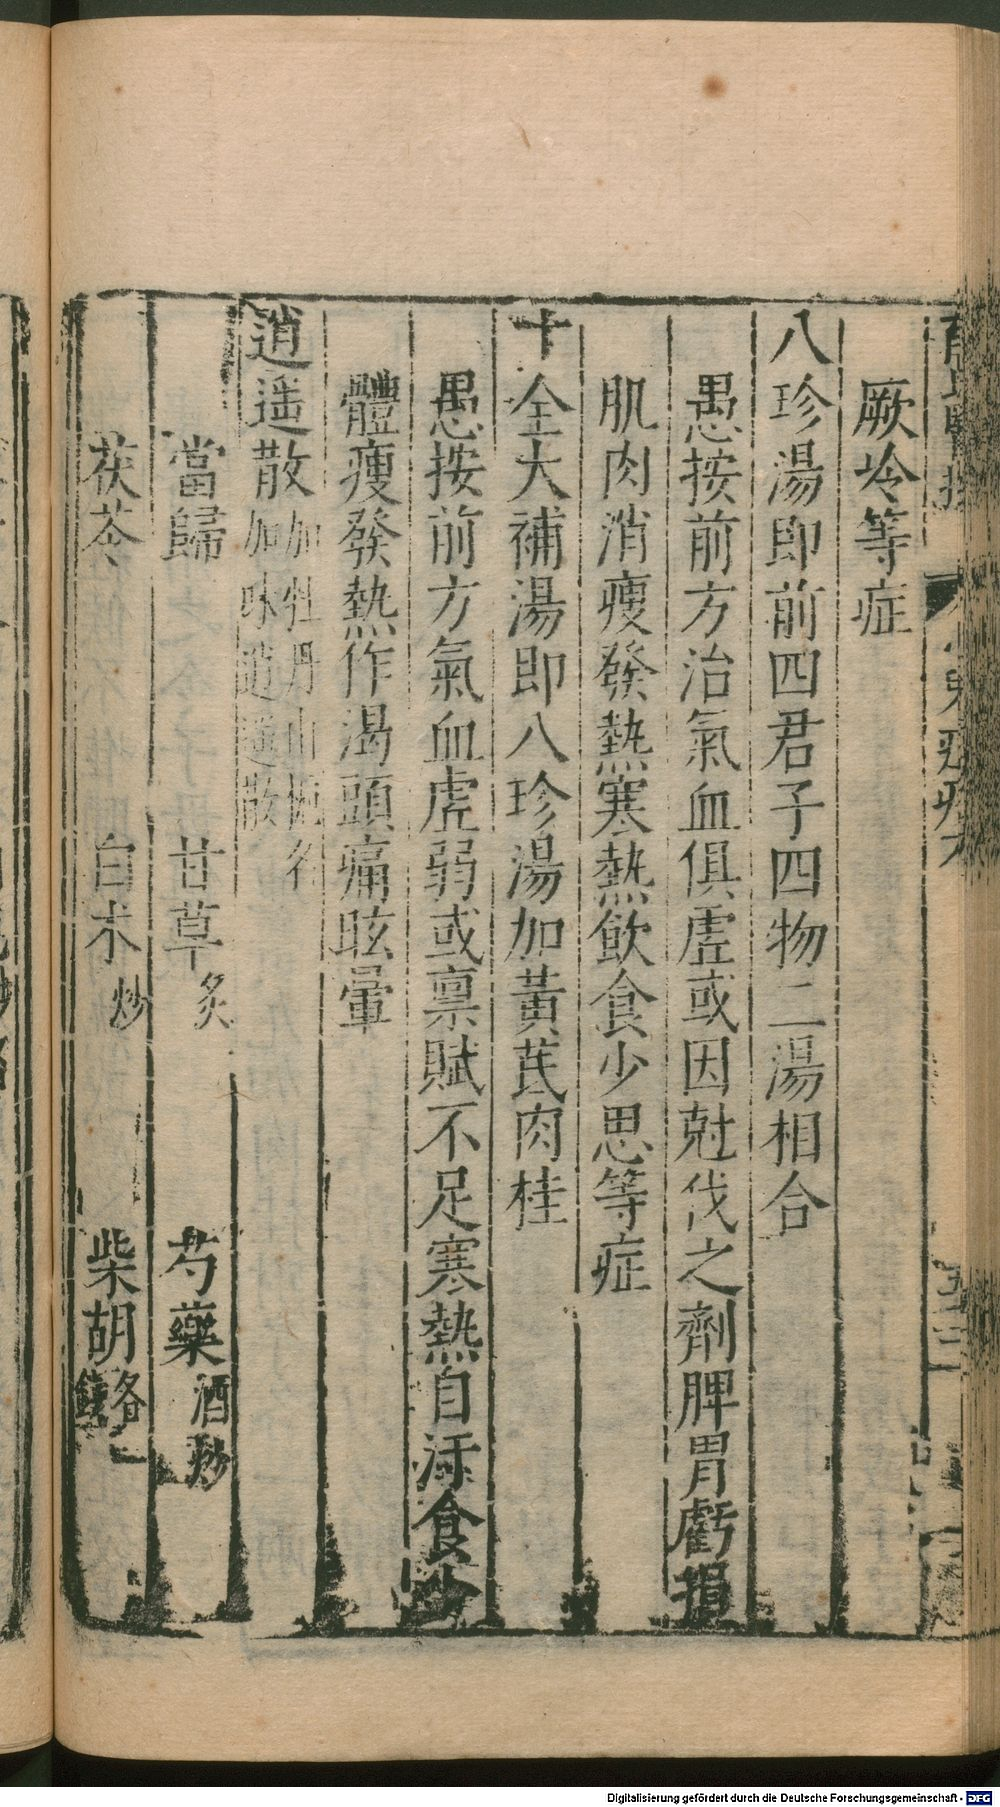 厥冷等症
八珍湯即前四君子四物二湯相合
愚按前方治氣血俱虛或因尅伐之劑脾胃虧損
肌肉消瘦發熱寒熱飲食少思等症
十全大補湯即八珍湯加黃芪肉桂
愚按前方氣血虛弱或禀賦不足寒熱自汗食少
體瘦發熱作渴頭痛眩暈
逍遥散加牡丹山梔名
加味逍遥散
當歸 甘草炙 芍藥酒炒
茯苓 白术炒 柴胡各一錢
Digitalisierung gefördert durch die Deutsche Forschungsgemeinschaft - DFG